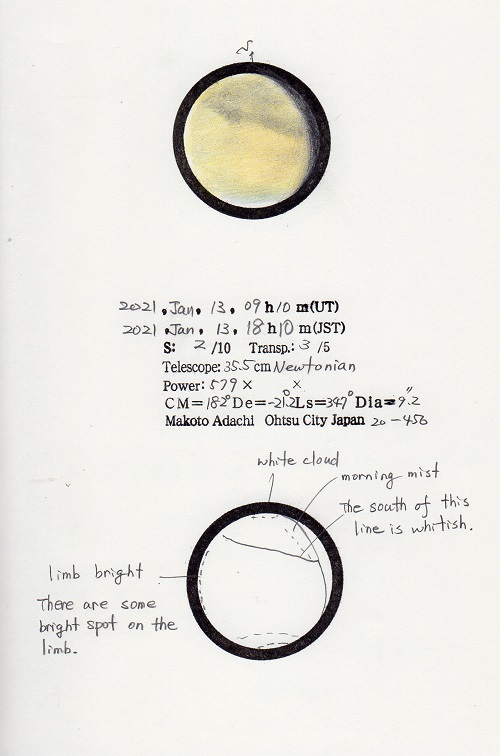 2021, Jan. 13, 09h10m(UT)
2021, Jan. 13, 18h10m(JST)
S: 2/10 Transp.: 3/5
Telescope: 35.5cm Newtonian
Power: 579× ×
CM=182° De=-21.2° Ls=347° Dia=9.2"
Makoto Adachi Ohtsu City Japan 20-456
white cloud
morning mist
The south of this
line is whitish.
limb bright
There are some
bright spot on the
limb.